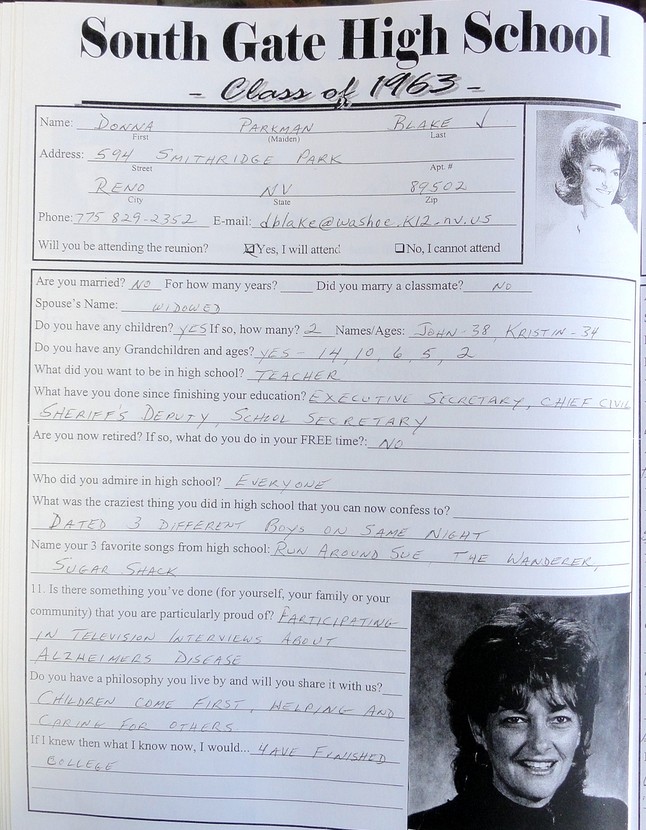 South Gate High School
- Class of 1963 -
Name: DONNA PARKMAN BLAKE
First (Maiden) Last
Address: 594 SMITHRIDGE PARK
Street Apt. #
RENO NV 89502
City State Zip
Phone: 775 829-2352 E-mail: dblake@washoe.K12.nv.us
Will you be attending the reunion? Yes, I will attend No, I cannot attend
Are you married? NO For how many years? Did you marry a classmate? NO
Spouse's Name: WIDOWED
Do you have any children? YES If so, how many? 2 Names/Ages: JOHN-38, KRISTIN-34
Do you have any Grandchildren and ages? YES - 14, 10, 6, 5, 2
What did you want to be in high school? TEACHER
What have you done since finishing your education? EXECUTIVE SECRETARY, CHIEF CIVIL
SHERIFF'S DEPUTY, SCHOOL SECRETARY
Are you now retired? If so, what do you do in your FREE time?: NO
Who did you admire in high school? EVERYONE
What was the craziest thing you did in high school that you can now confess to?
DATED 3 DIFFERENT BOYS ON SAME NIGHT
Name your 3 favorite songs from high school: RUN AROUND SUE, THE WANDERER,
SUGAR SHACK
11. Is there something you've done (for yourself, your family or your
community) that you are particularly proud of? PARTICIPATING
IN TELEVISION INTERVIEWS ABOUT
ALZHEIMERS DISEASE
Do you have a philosophy you live by and will you share it with us?
CHILDREN COME FIRST, HELPING AND
CARING FOR OTHERS
If I knew then what I know now, I would... HAVE FINISHED
COLLEGE